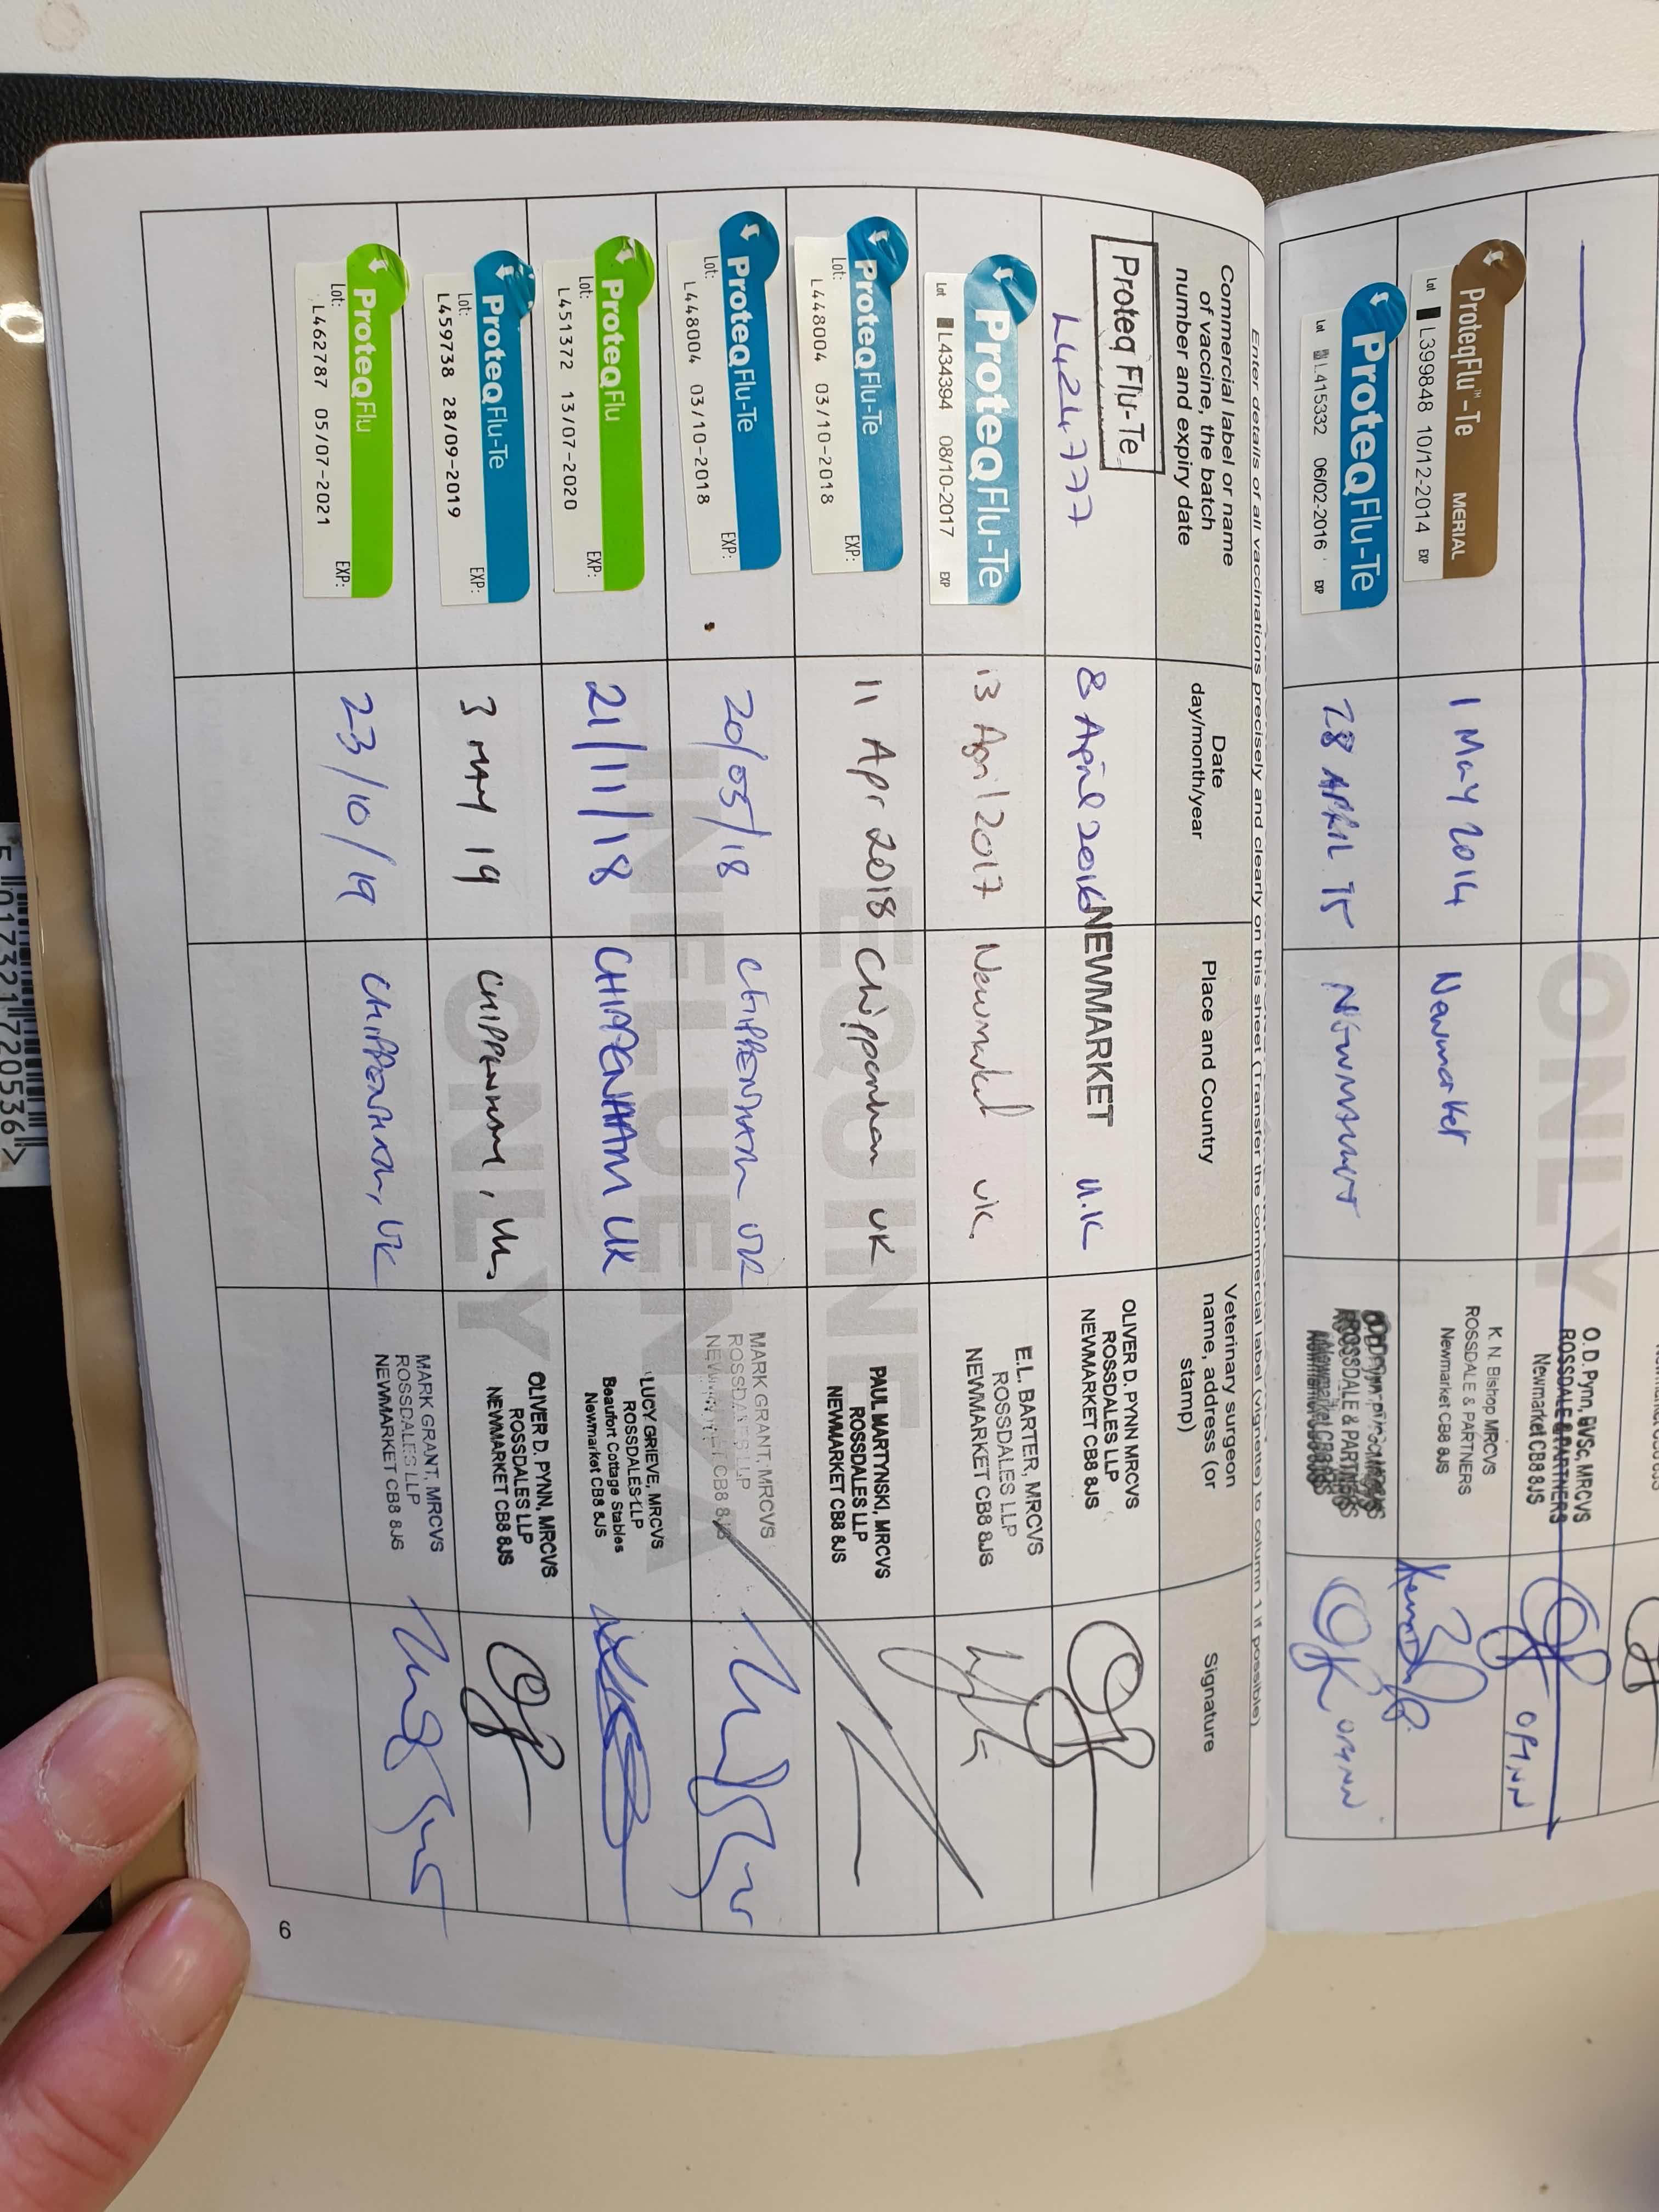 O. D. Pynn, BVSc, MRCVS
ROSSDALE & PARTNERS
Newmarket CB8 8JS
OPYNN
ProteqFlu™-Te MERIAL
Lot L399848 10/12-2014 EXP
1 May 2014
Newmarket
K. N. Bishop MRCVS
ROSSDALE & PARTNERS
Newmarket CB8 8JS
ProteQFlu-Te
Lot L415332 06/02-2016 EXP
28 APRIL 15
NEWMARKET
ROSSDALE & PARTNERS
Newmarket CB8 8JS
OPYNN
ONLY
Enter details of all vaccinations precisely and clearly on this sheet (Transfer the commercial label (vignette) to column 1 if possible)
Commercial label or name
of vaccine, the batch
number and expiry date
Date
day/month/year
Place and Country
Veterinary surgeon
name, address (or
stamp)
Signature
Proteq Flu-Te
L424777
8 April 2016
NEWMARKET U.K
OLIVER D. PYNN MRCVS
ROSSDALES LLP
NEWMARKET CB8 8JS
ProteQFlu-Te
Lot L434394 08/10-2017 EXP
13 April 2017
Newmarket UK.
E.L. BARTER, MRCVS
ROSSDALES LLP
NEWMARKET CB8 8JS
ProteQFlu-Te
Lot: EXP:
L448004 03/10-2018
11 Apr 2018
Chippenham UK
PAUL MARTYNSKI, MRCVS
ROSSDALES LLP
NEWMARKET CB8 8JS
ProteQFlu-Te
Lot: EXP:
L448004 03/10-2018
20/05/18
CHIPPENHAM UK
MARK GRANT, MRCVS
ROSSDALES LLP
NEWMARKET CB8 8JS
ProteQFlu
Lot: EXP:
L451372 13/07-2020
21/11/18
CHIPPENHAM UK
LUCY GRIEVE, MRCVS
ROSSDALES LLP
Beaufort Cottage Stables
Newmarket CB8 8JS
ProteQFlu-Te
Lot: EXP:
L459738 28/09-2019
3 MAY 19
CHIPPENHAM, UK.
OLIVER D. PYNN, MRCVS
ROSSDALES LLP
NEWMARKET CB8 8JS
ProteQFlu
Lot: EXP:
L462787 05/07-2021
23/10/19
CHIPPENHAM, UK
MARK GRANT, MRCVS
ROSSDALES LLP
NEWMARKET CB8 8JS
EQUINE
INFLUENZA
ONLY
6